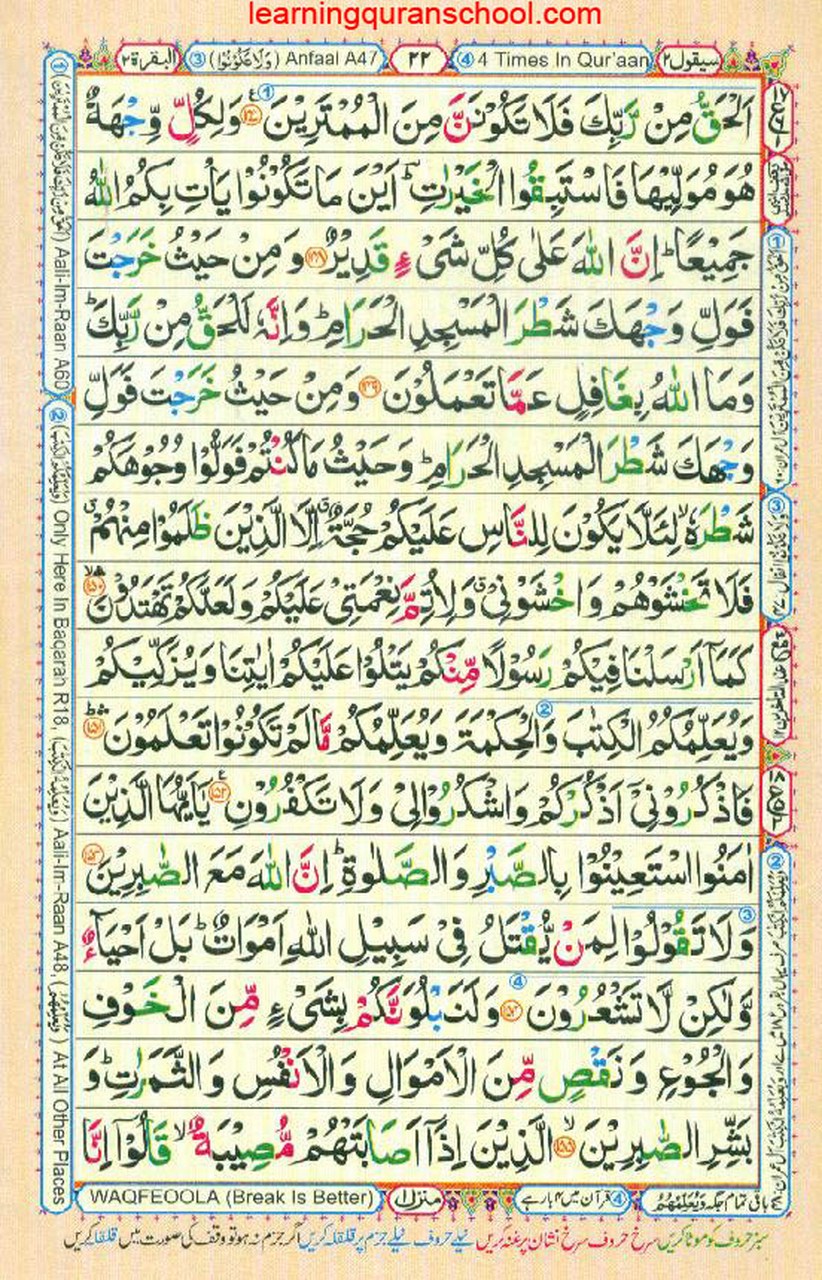 learningquranschool.com
سیقول۲ ④ 4 Times In Qur'aan ۲۲ Anfaal A47 (وَلَا تَكُوْنُوْا) ③ البقرة۲
اَلْحَقُّ مِنْ رَّبِّكَ فَلَا تَكُوْنَنَّ مِنَ الْمُمْتَرِيْنَ ۱۴۷ وَلِكُلٍّ وِّجْهَةٌ
هُوَ مُوَلِّيْهَا فَاسْتَبِقُوا الْخَيْرٰتِ ؕ اَيْنَ مَا تَكُوْنُوْا يَاْتِ بِكُمُ اللّٰهُ
جَمِيْعًا ؕ اِنَّ اللّٰهَ عَلٰى كُلِّ شَىْءٍ قَدِيْرٌ ۱۴۸ وَمِنْ حَيْثُ خَرَجْتَ
فَوَلِّ وَجْهَكَ شَطْرَ الْمَسْجِدِ الْحَرَامِ ؕ وَاِنَّهٗ لَلْحَقُّ مِنْ رَّبِّكَ ؕ
وَمَا اللّٰهُ بِغَافِلٍ عَمَّا تَعْمَلُوْنَ ۱۴۹ وَمِنْ حَيْثُ خَرَجْتَ فَوَلِّ
وَجْهَكَ شَطْرَ الْمَسْجِدِ الْحَرَامِ ؕ وَحَيْثُ مَا كُنْتُمْ فَوَلُّوْا وُجُوْهَكُمْ
شَطْرَهٗ ۙ لِئَلَّا يَكُوْنَ لِلنَّاسِ عَلَيْكُمْ حُجَّةٌ ۗ اِلَّا الَّذِيْنَ ظَلَمُوْا مِنْهُمْ ۗ
فَلَا تَخْشَوْهُمْ وَاخْشَوْنِىْ ۗ وَلِاُتِمَّ نِعْمَتِىْ عَلَيْكُمْ وَلَعَلَّكُمْ تَهْتَدُوْنَ ۱۵۰
كَمَاۤ اَرْسَلْنَا فِيْكُمْ رَسُوْلًا مِّنْكُمْ يَتْلُوْا عَلَيْكُمْ اٰيٰتِنَا وَيُزَكِّيْكُمْ
وَيُعَلِّمُكُمُ الْكِتٰبَ وَالْحِكْمَةَ ② وَيُعَلِّمُكُمْ مَّا لَمْ تَكُوْنُوْا تَعْلَمُوْنَ ۱۵۱
فَاذْكُرُوْنِىْۤ اَذْكُرْكُمْ وَاشْكُرُوْا لِىْ وَلَا تَكْفُرُوْنِ ۱۵۲ يٰۤاَيُّهَا الَّذِيْنَ
اٰمَنُوا اسْتَعِيْنُوْا بِالصَّبْرِ وَالصَّلٰوةِ ؕ اِنَّ اللّٰهَ مَعَ الصّٰبِرِيْنَ ۱۵۳
وَلَا تَقُوْلُوْا لِمَنْ يُّقْتَلُ فِىْ سَبِيْلِ اللّٰهِ اَمْوَاتٌ ؕ بَلْ اَحْيَآءٌ
وَّلٰكِنْ لَّا تَشْعُرُوْنَ ۱۵۴ وَلَنَبْلُوَنَّكُمْ بِشَىْءٍ مِّنَ الْخَوْفِ
وَالْجُوْعِ وَنَقْصٍ مِّنَ الْاَمْوَالِ وَالْاَنْفُسِ وَالثَّمَرٰتِ ؕ وَ
بَشِّرِ الصّٰبِرِيْنَ ۱۵۵ الَّذِيْنَ اِذَاۤ اَصَابَتْهُمْ مُّصِيْبَةٌ ۙ قَالُوْۤا اِنَّا
① Aali-Im-Raan A60
② Only Here In Baqarah R18, Aali-Im-Raan A48, At All Other Places
باقی تمام جگہ وَيُعَلِّمُهُمْ ④ قرآن میں ۴ بار ہے منزل۱ WAQFEOOLA (Break Is Better)
سبز حروف کو موٹا کریں سرخ حروف سرخ نشان پر غنہ کریں نیلے حروف نیلے جزم پر قلقلہ کریں اگر جزم نہ ہو تو وقف کی صورت میں قلقلہ کریں